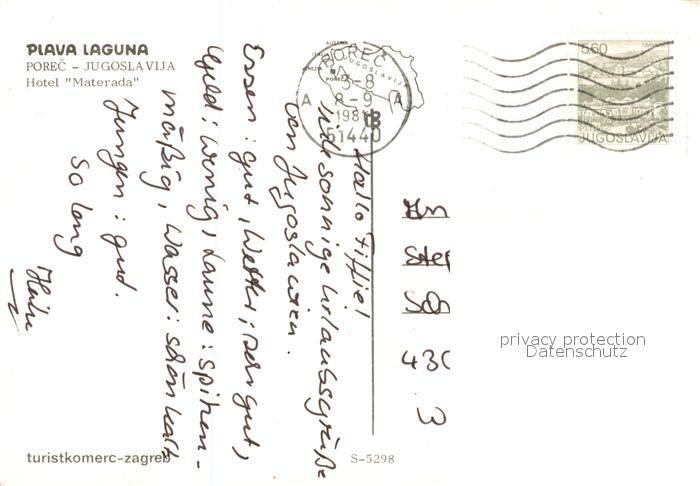 PLAVA LAGUNA
POREČ – JUGOSLAVIJA
Hotel "Materada"
Hallo Fiffie!
viele sonnige Urlaubsgrüße
von Jugoslawien.
Essen: gut, Wetter: sehr gut,
Geld: wenig, Laune: spitzen-
mäßig, Wasser: schön kalt
Jungen: gut.
So long
Heike
turistkomerc-zagreb
S-5298
POREČ
JUGOSLAVIJA
3-8
8-9
A A
1981
51440
5,60
JUGOSLAVIJA
430
3
privacy protection
Datenschutz